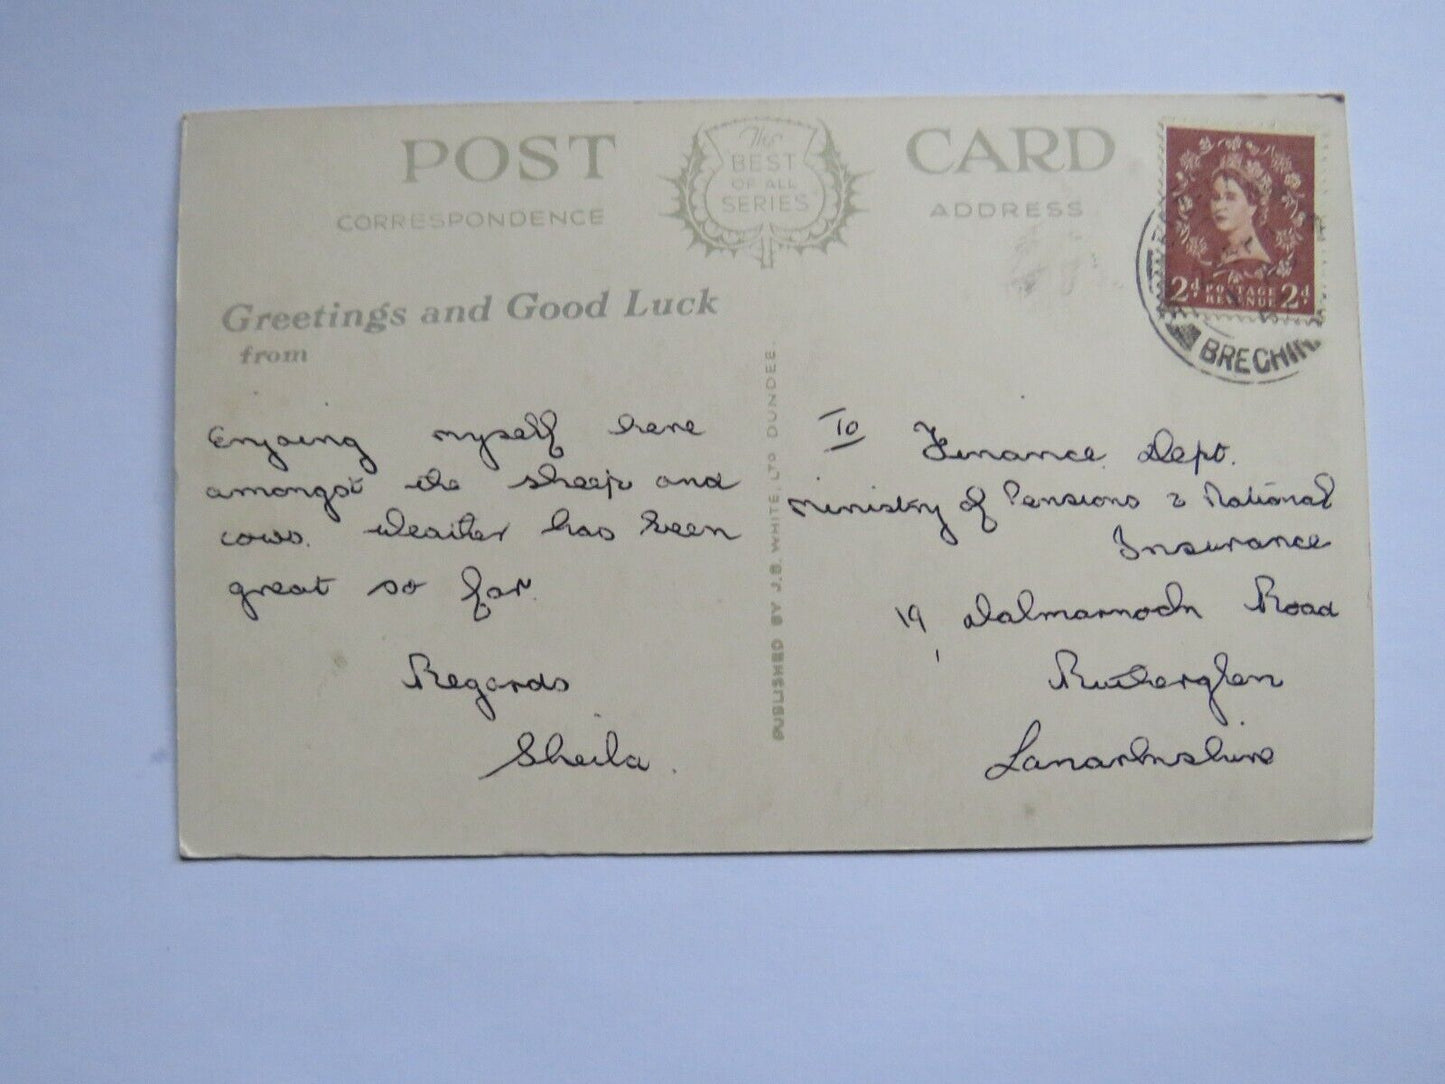 POST CARD
The
BEST
OF ALL
SERIES
CORRESPONDENCE
ADDRESS
2d POSTAGE REVENUE 2d
BRECHIN
Greetings and Good Luck
from
Enjoing myself here
amongst the sheep and
cows. Weather has been
great so far.
Regards
Sheila.
PUBLISHED BY J.B. WHITE, LTD DUNDEE.
To
Finance Dept.
Ministry of Pensions & National
Insurance
19, Dalmarnock Road
Rutherglen
Lanarkshire